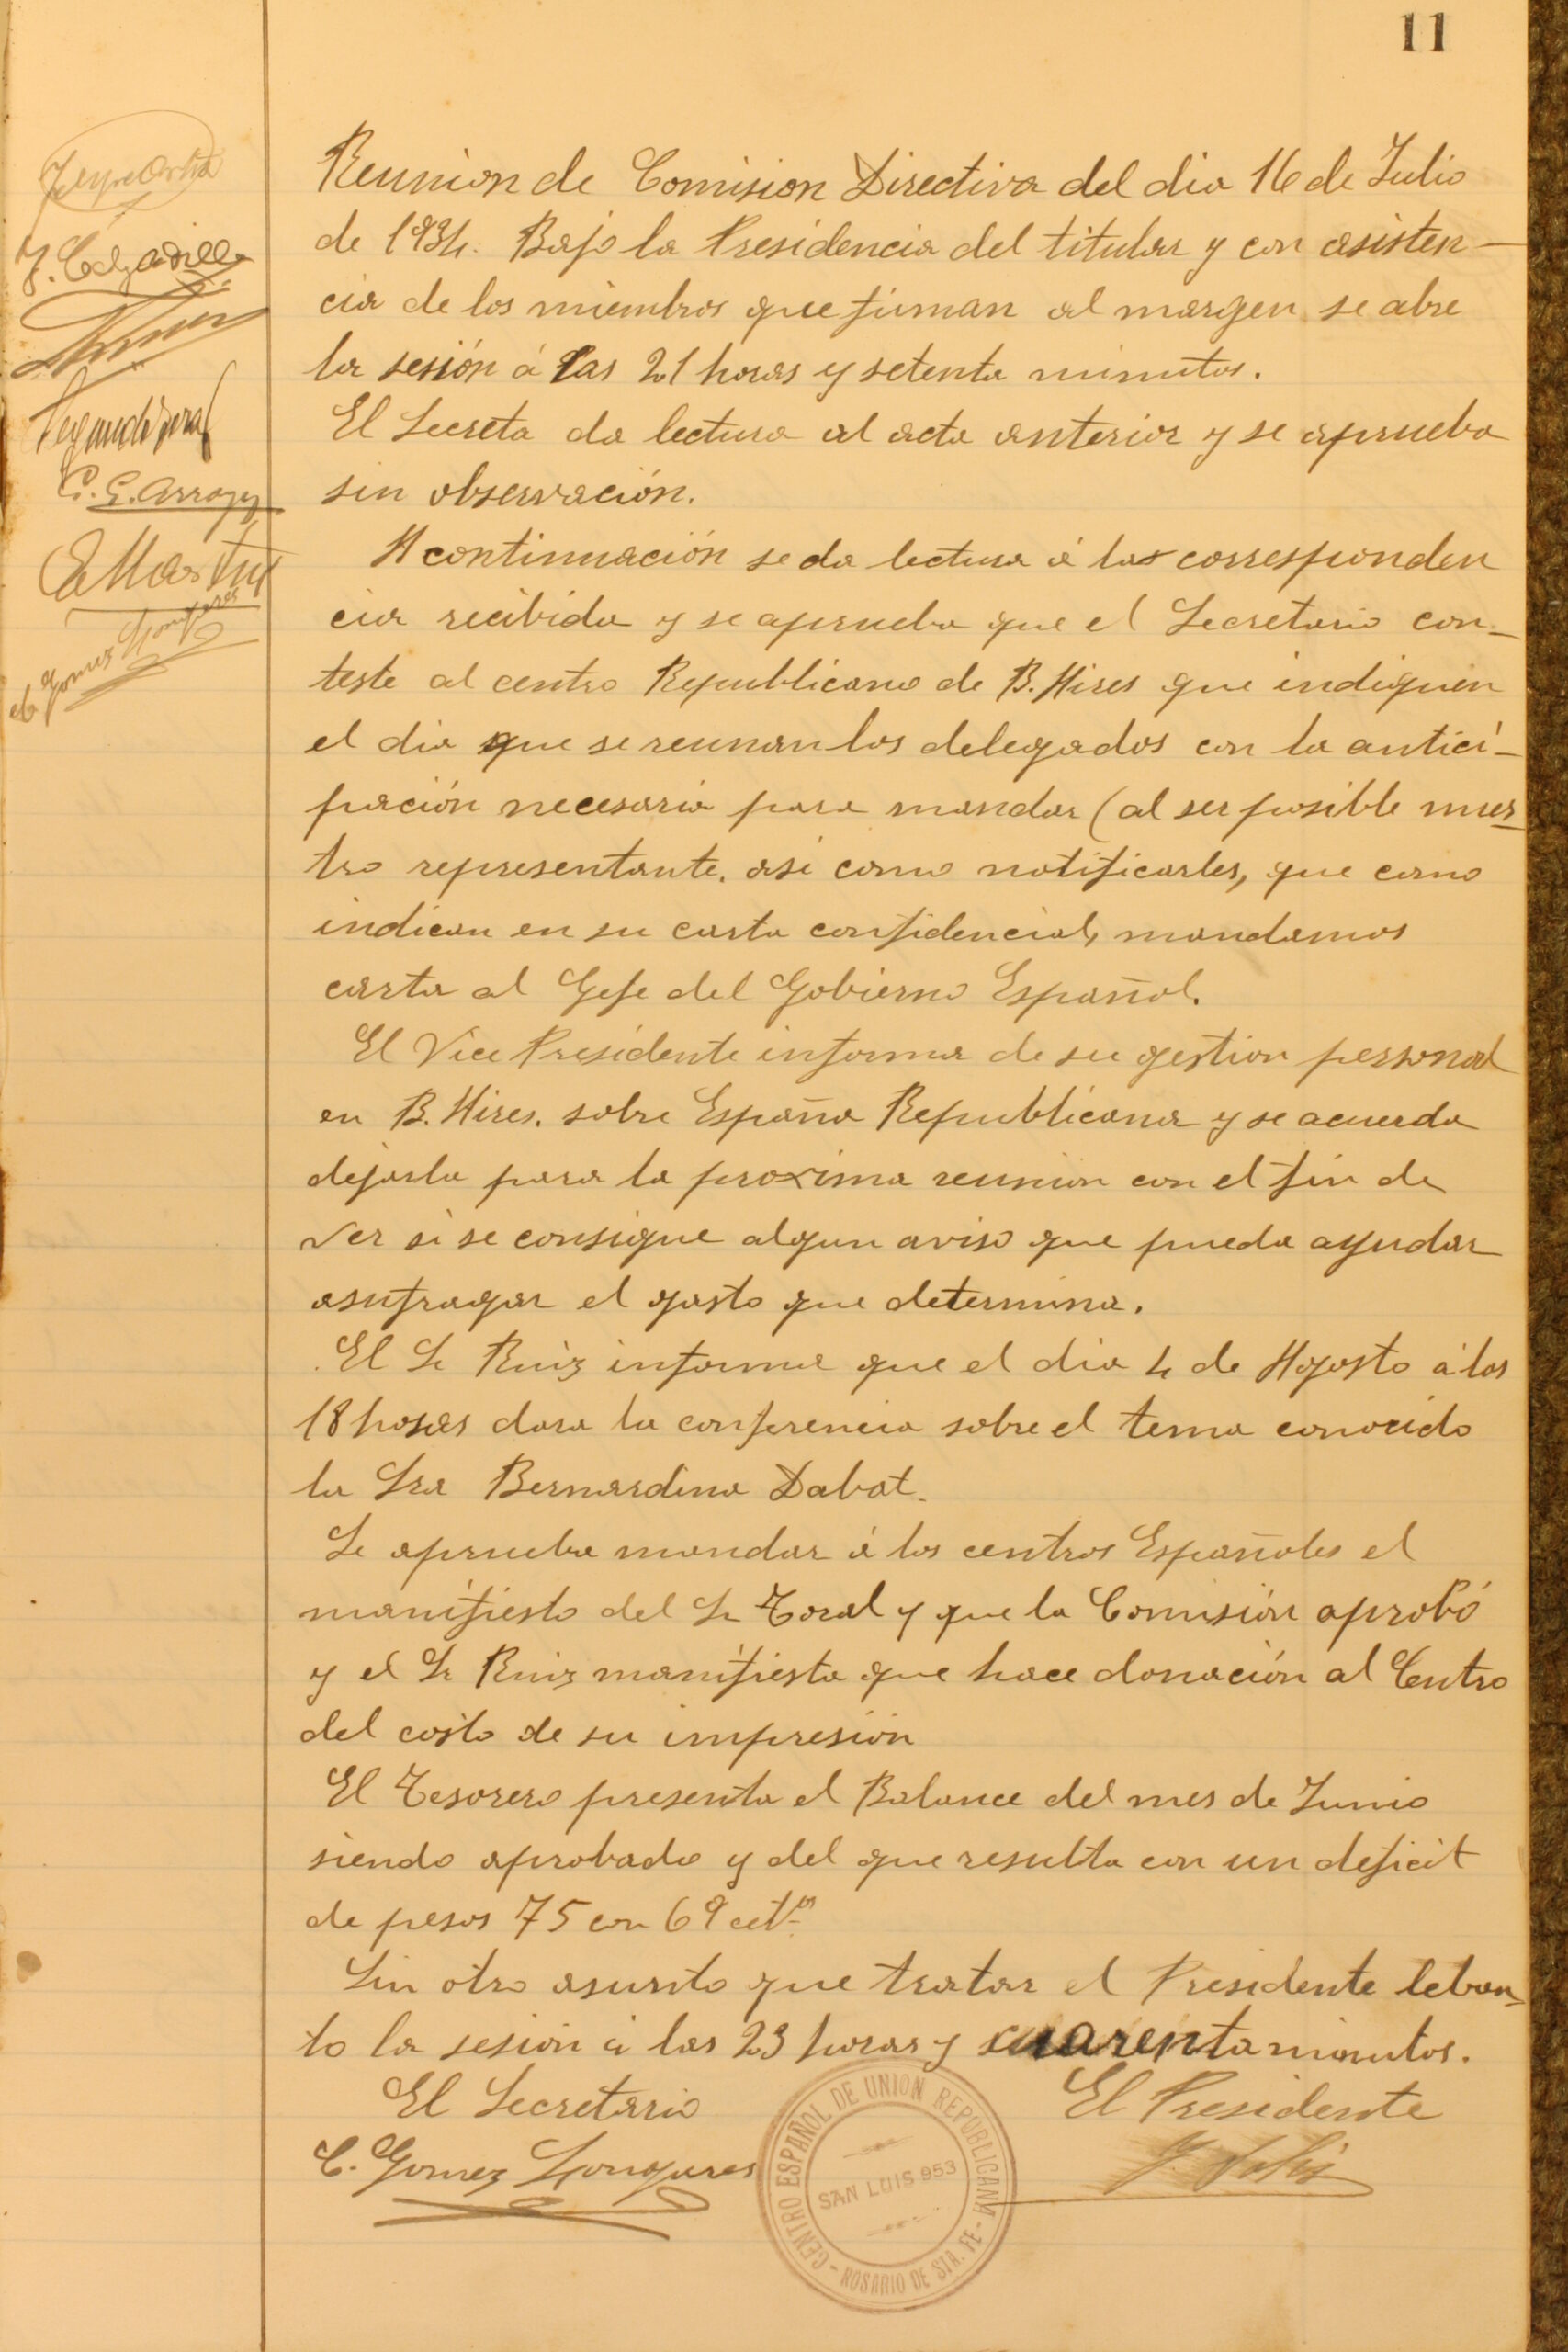 11
Reunion de Comision Directiva del dia 16 de Julio
de 1934. Bajo la Presidencia del titular y con asisten-
cia de los miembros que firman al margen se abre
la sesión á las 21 horas y setenta minutos.
El Secreta da lectura al acta anterior y se aprueba
sin observación.
A continuación se da lectura á la corresponden
cia recibida y se aprueba que el Secretario con-
teste al centro Republicano de B. Aires que indiquen
el dia que se reunan los delegados con la antici-
pación necesaria para mandar (al ser posible nues-
tro representante. asi como notificarles, que como
indican en su carta confidencial, mandamos
carta al Gefe del Gobierno Español.
El Vice Presidente informa de su gestion personal
en B. Aires. sobre España Republicana y se acuerda
dejarla para la proxima reunion con el fin de
ver si se consigue algun aviso que pueda ayudar
asufragar el gasto que determina.
El Sr Ruiz informa que el dia 4 de Agosto á las
18 horas dara la conferencia sobre el tema conocido
la Sra Bernardina Dabat.
Se aprueba mandar á los centros Españoles el
manifiesto del Sr Toral y que la Comisión aprobó
y el Sr Ruiz manifiesta que hace donación al Centro
del costo de su impresión
El Tesorero presenta el Balance del mes de Junio
siendo aprobado y del que resulta con un deficit
de pesos 75 con 69 cetvs
Sin otro asunto que tratar el Presidente leban-
to la sesión á las 23 horas y cuarenta minutos.
El Secretario El Presidente
C. Gomez Longares
J. Calzadilla
Segundo Toral
G. G. Arroyo
E Martin
C. Gomez Longares
CENTRO ESPAÑOL DE UNION REPUBLICANA
SAN LUIS 953
ROSARIO DE STA. FE